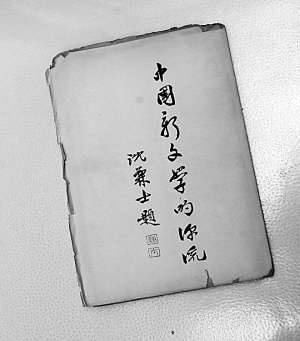 中國新文學的源流
沈兼士題